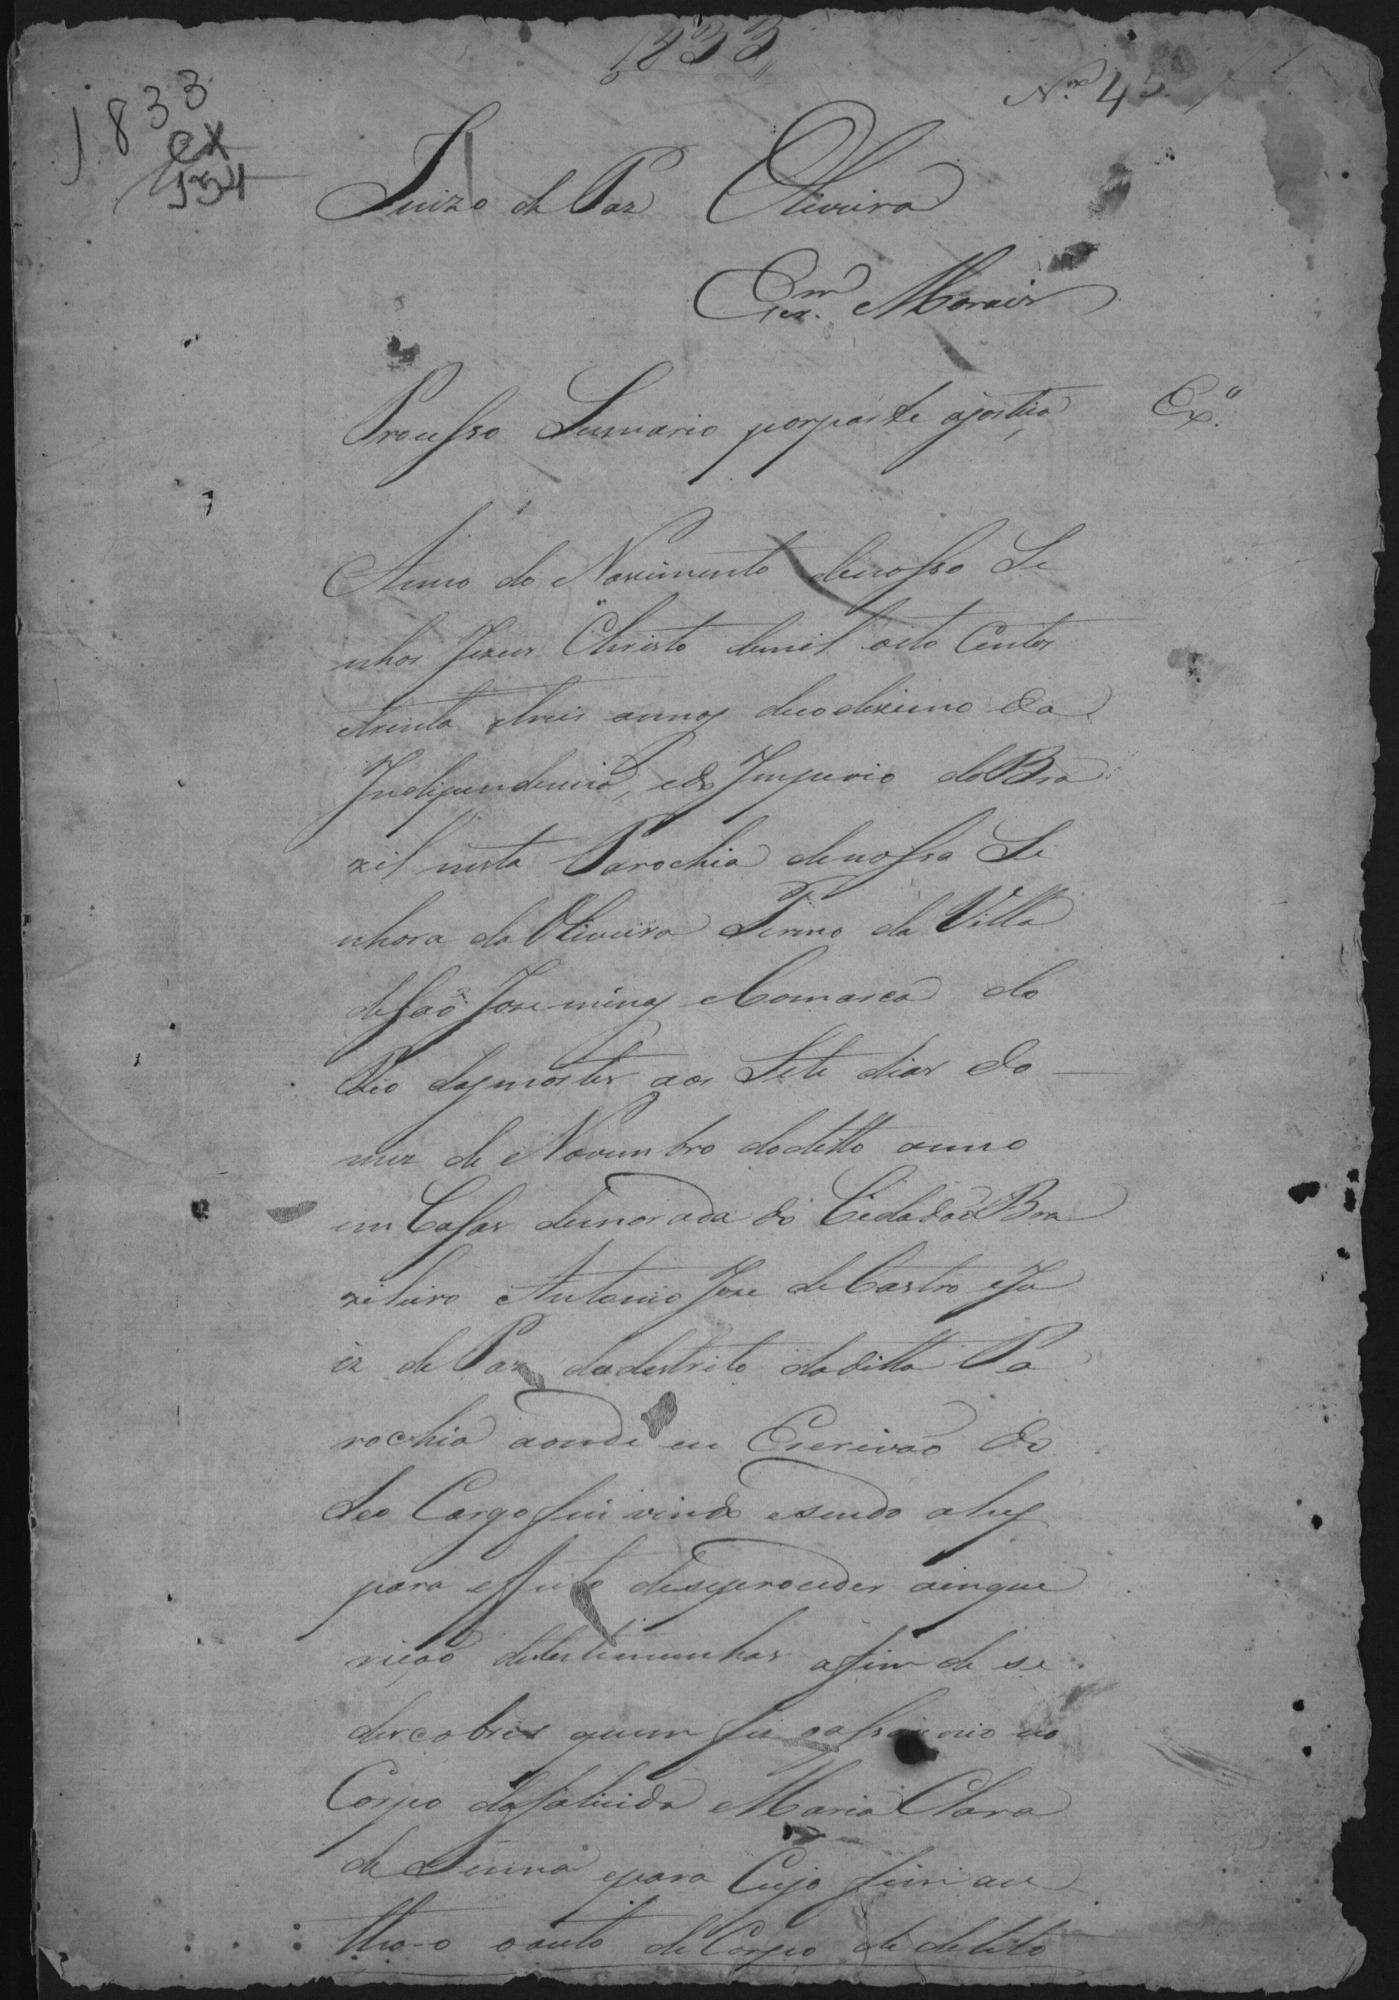 1833
Nº 45
1833
ex
134
Juizo de Paz Oliveira
Esc.m Morais
Processo Sumario por parte ajustiça Ex.
Anno do Nascimento denosso Se
nhor Jezus Christo demil oito Centos
etrinta etreis annos duodecimo da
Independencia, edo Imperio do Bra
zil nesta Parochia denossa Se
nhora da Oliveira Termo da Villa
desaõ Joze minas eComarca do
Rio dasmortes aos Sete dias do
mez de Novembro dodetto anno
em Casas demorada do Cidadaõ Bra
zileiro Antonio Joze de Castro eJu
iz de Paz dodestrito daditta Pa
rochia aonde eu Escrivaõ do
Seo Cargo fui vindo esendo ahy
para efeito deseproceder ainque
riçaõ detestimunhas afim de se
descobrir quem fes oasacinio no
Corpo dafalicida Maria Clara
de Sunna epara Cujo fim au
thoo oauto de Corpo de delito